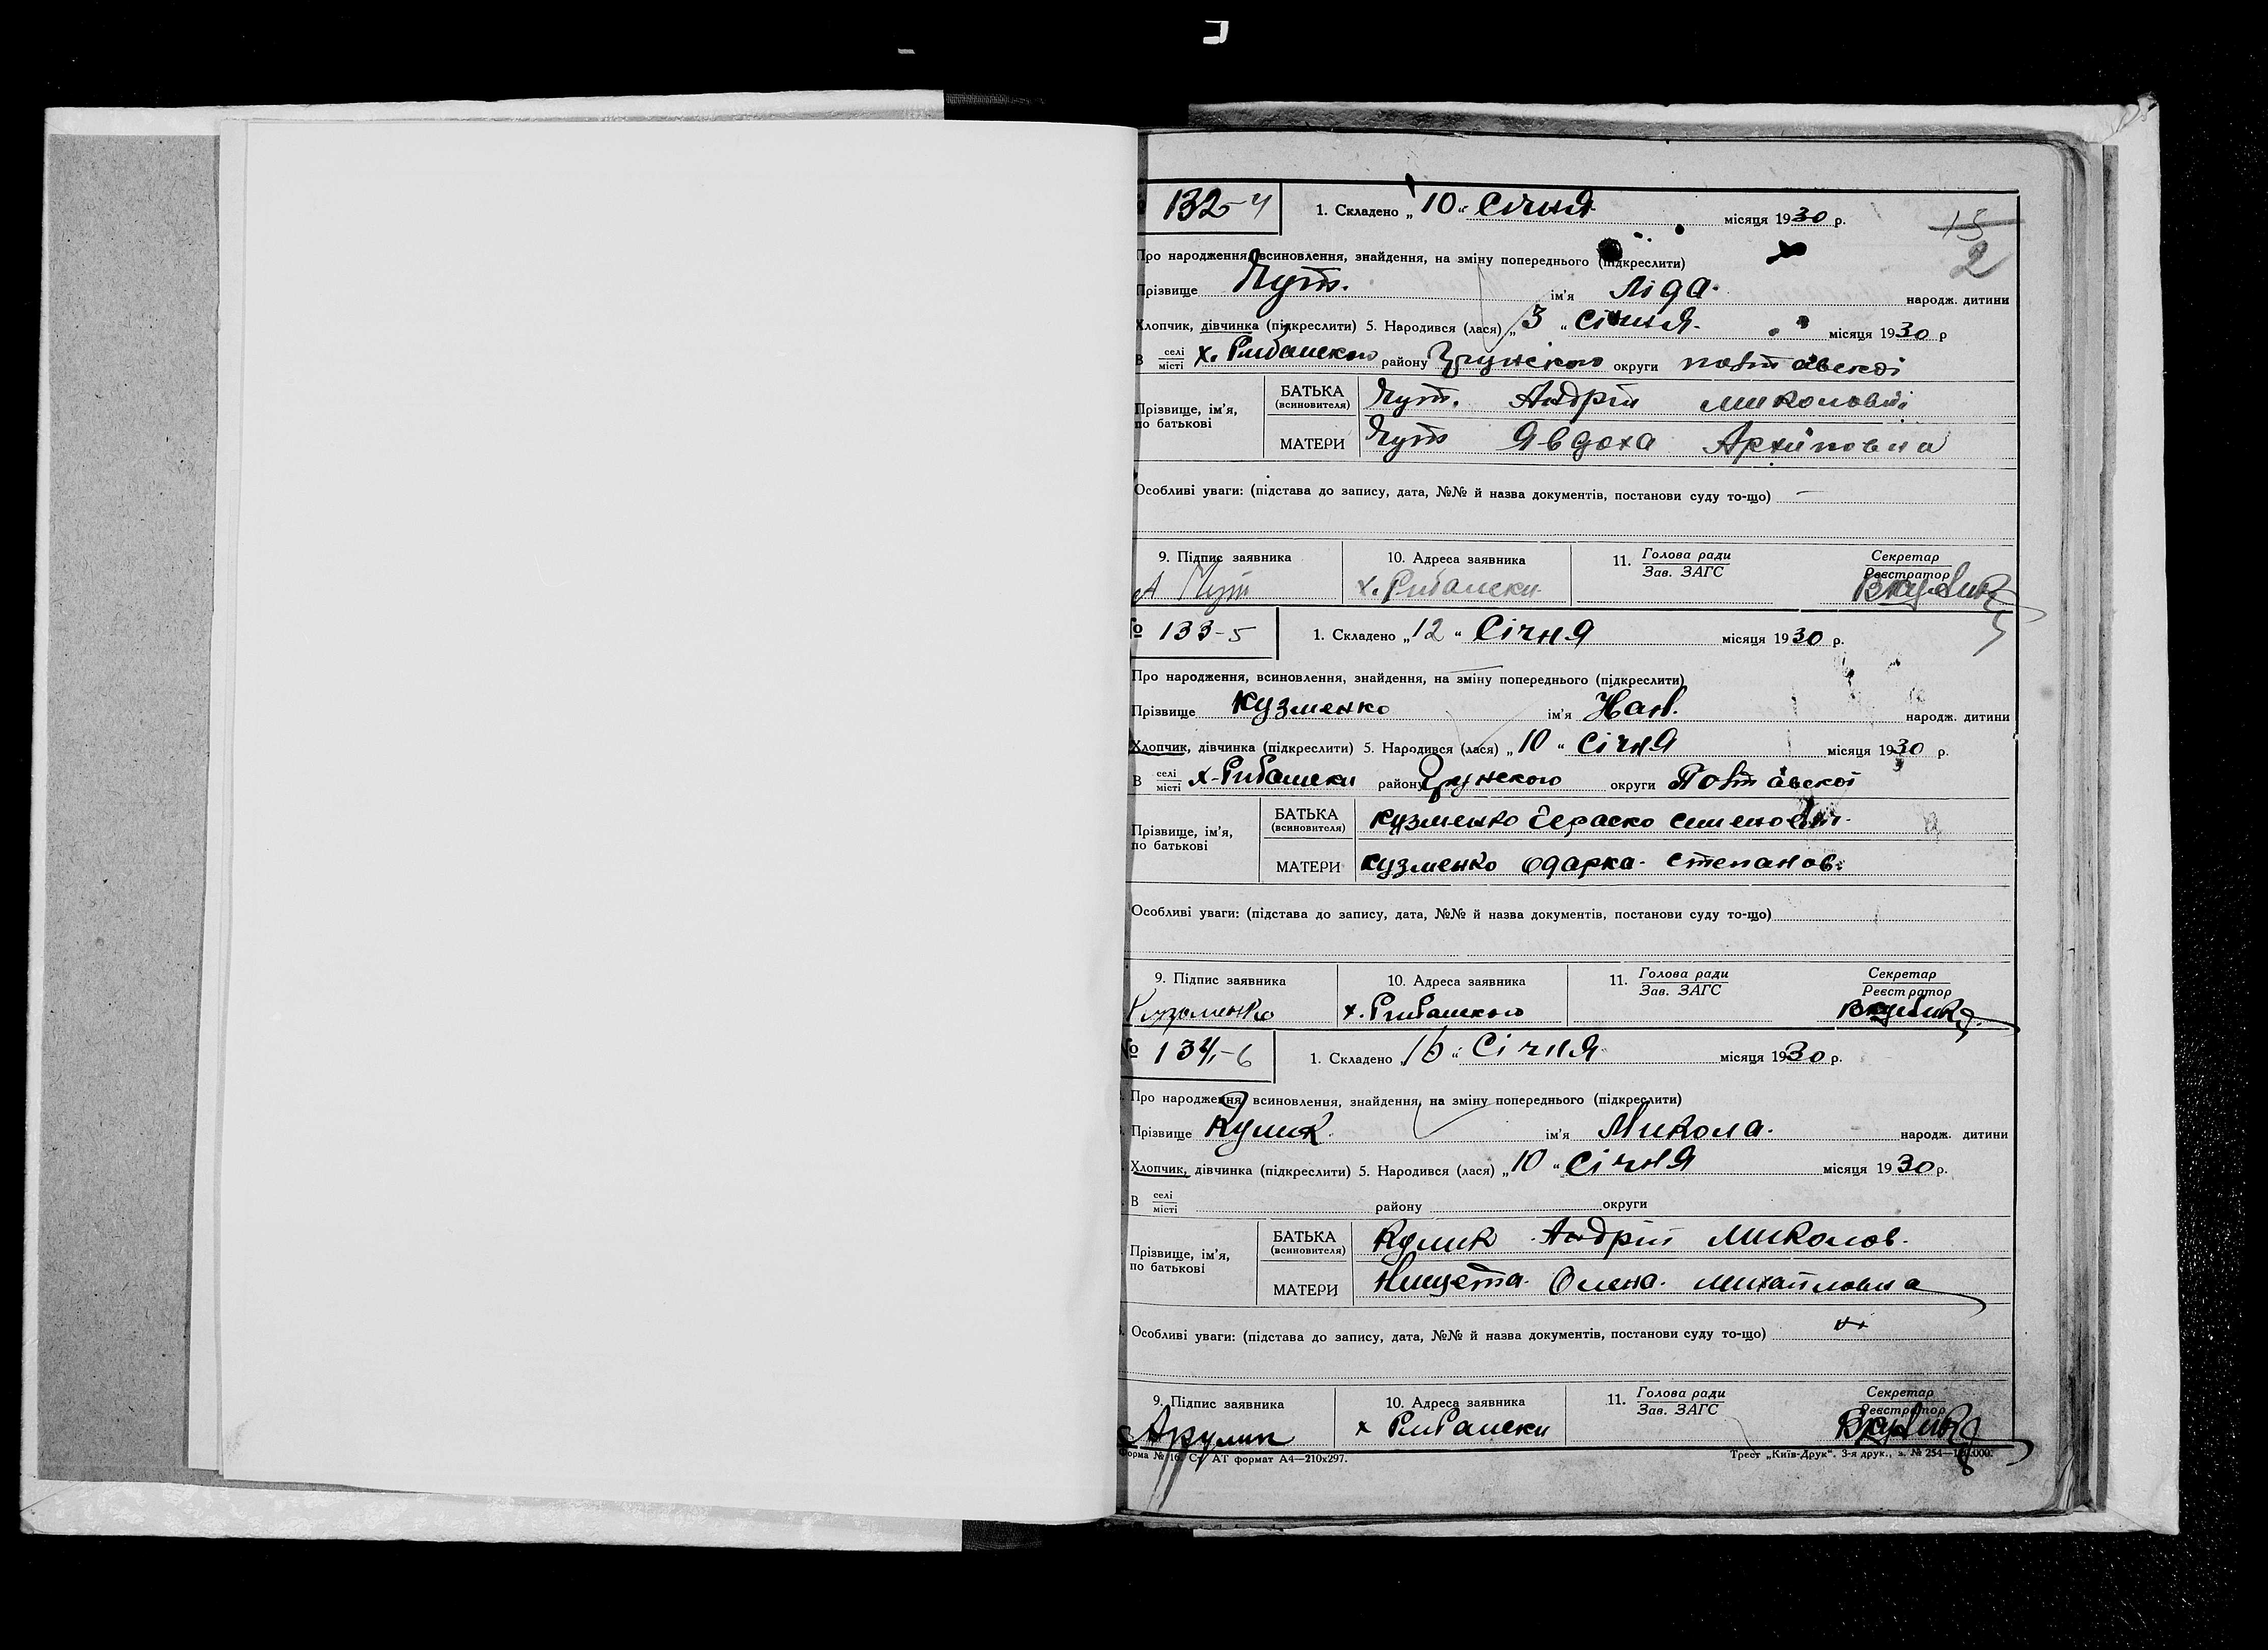 132-4
1. Складено „10" Січня місяця 1930 р.
15
2
Про народження, всиновлення, знайдення, на зміну попереднього (підкреслити)
Прізвище ім'я Ліда. народж. дитини
Хлопчик, дівчинка (підкреслити) 5. Народився (лася) „3" Січня. місяця 1930 р
В селі місті х. району округи Полтавскої
Прізвище, ім'я, по батькові
БАТЬКА (всиновителя) Андрій
МАТЕРИ Явдоха Архиповна
Особливі уваги: (підстава до запису, дата, №№ й назва документів, постанови суду то-що)
9. Підпис заявника 10. Адреса заявника 11. Голова ради Зав. ЗАГС Секретар Реєстратор
А х. Рибалски
№ 133-5
1. Складено „12" Січня місяця 1930 р.
Про народження, всиновлення, знайдення, на зміну попереднього (підкреслити)
Прізвище Кузменко ім'я народж. дитини
Хлопчик, дівчинка (підкреслити) 5. Народився (лася) „10" Січня місяця 1930 р.
В селі місті х. Рибалски району округи Полтавскої
Прізвище, ім'я, по батькові
БАТЬКА (всиновителя) Кузменко
МАТЕРИ Кузменко Одарка. Степанов.
Особливі уваги: (підстава до запису, дата, №№ й назва документів, постанови суду то-що)
9. Підпис заявника 10. Адреса заявника 11. Голова ради Зав. ЗАГС Секретар Реєстратор
Кузьменко х. Рибалского
№ 134-6
1. Складено Січня місяця 1930 р.
Про народження, всиновлення, знайдення, на зміну попереднього (підкреслити)
Прізвище Кулик ім'я Микола. народж. дитини
Хлопчик, дівчинка (підкреслити) 5. Народився (лася) „10" Січня місяця 1930 р.
В селі місті району округи
Прізвище, ім'я, по батькові
БАТЬКА (всиновителя) Кулик Андрій Миколов.
МАТЕРИ Нищета Олена. Михайловна
Особливі уваги: (підстава до запису, дата, №№ й назва документів, постанови суду то-що)
9. Підпис заявника 10. Адреса заявника 11. Голова ради Зав. ЗАГС Секретар Реєстратор
х Рибалски
Форма № 16. Ст. АТ формат А4—210х297. Трест „Київ-Друк". 3-я друк., з. № 254